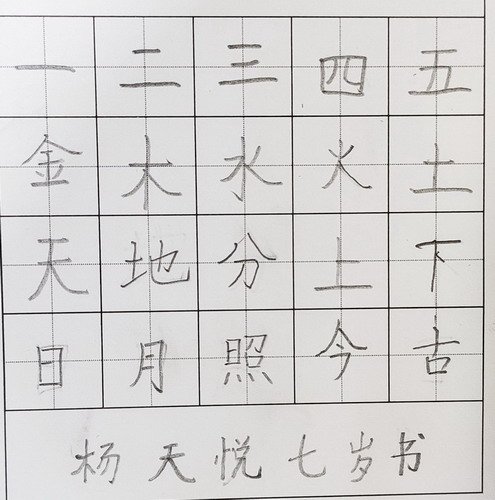 一二三四五
金木水火土
天地分上下
日月照今古
杨天悦七岁书